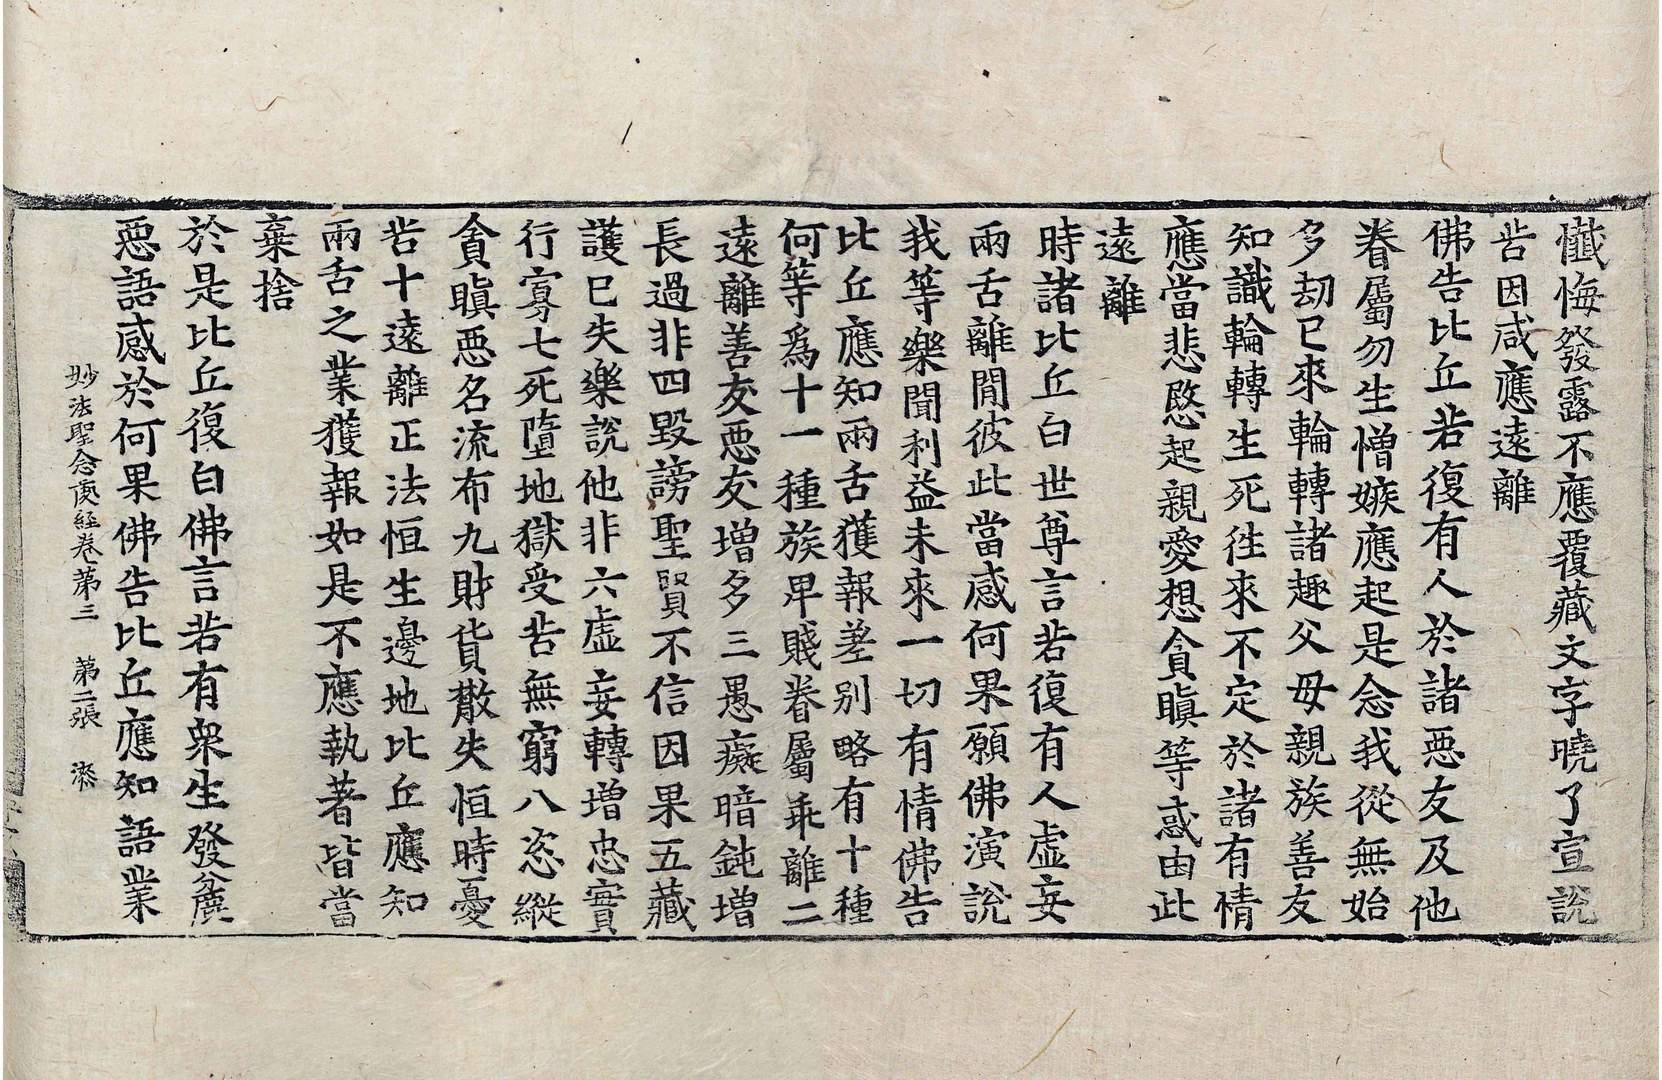 懺悔發露不應覆藏文字曉了宣說
苦因咸應遠離
佛告比丘若復有人於諸惡友及他
眷屬勿生憎嫉應起是念我從無始
多劫已來輪轉諸趣父母親族善友
知識輪轉生死徃來不定於諸有情
應當悲愍起親愛想貪瞋等惑由此
遠離
時諸比丘白世尊言若復有人虛妄
兩舌離間彼此當感何果願佛演說
我等樂聞利益未來一切有情佛告
比丘應知兩舌獲報差别略有十種
何等爲十一種族卑賤眷屬乖離二
遠離善友惡友增多三愚癡暗鈍增
長過非四毀謗聖賢不信因果五藏
護已失樂說他非六虛妄轉增忠實
行寡七死墮地獄受苦無窮八恣縱
貪瞋惡名流布九財貨散失恒時憂
苦十遠離正法恒生邊地比丘應知
兩舌之業獲報如是不應執著皆當
棄捨
於是比丘復白佛言若有衆生發麁
惡語感於何果佛告比丘應知語業
妙法聖念處経卷苐三　苐二張　漆